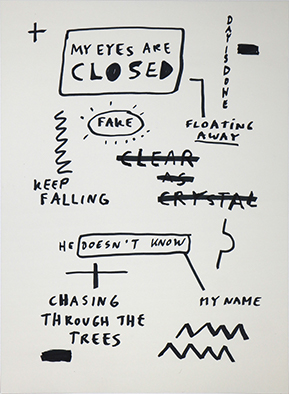 MY EYES ARE
CLOSED
DAY IS DONE
FAKE
FLOATING
AWAY
CLEAR
AS
CRYSTAL
KEEP
FALLING
HE DOESN'T KNOW
CHASING
THROUGH THE
TREES
MY NAME